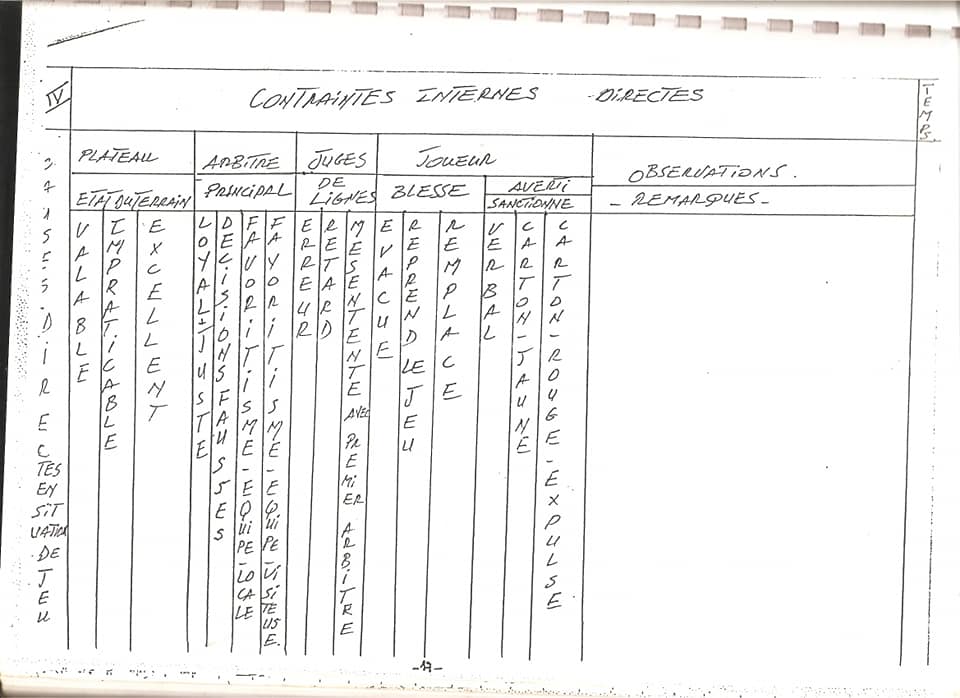 IV
CONTRAINTES INTERNES -DIRECTES
TEMPS.
PLATEAU
ARBITRE PRINCIPAL
JUGES DE LIGNES
JOUEUR
OBSERVATIONS.
- REMARQUES-
ETAT DU TERRAIN
BLESSE
AVERTI SANCTIONNE
VALABLE
IMPRATICABLE
EXCELLENT
LOYAL+JUSTE
DECISIONS FAUSSES
FAVORITISME-EQUIPE-LOCALE
FAVORITISME-EQUIPE-VISITEUSE.
ERREUR
RETARD
MESENTENTE AVEC PREMIER ARBITRE
EVACUE
REPREND LE JEU
REMPLACE
VERBAL
CARTON-JAUNE
CARTON-ROUGE-EXPULSE
DIRECTES EN SITUATION DE JEU
-17-